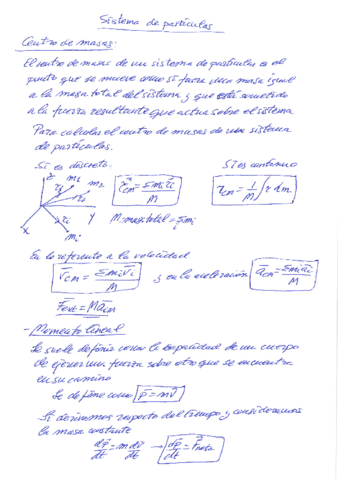 Sistema de partículas
Centro de masas:
El centro de masas de un sistema de partículas es el
punto que se mueve como si fuera una masa igual
a la masa total del sistema y que está sometido
a la fuerza resultante que actua sobre el sistema.
Para calcular el centro de masas de un sistema
de partículas.
Si es discreto: Si es continuo
z m₁ m₂ r₁ r⃗cm = Σmᵢr⃗ᵢ/M r⃗cm = 1/M ∫r⃗ dm
x y rᵢ mᵢ M=masa total = Σmᵢ
En lo referente a la velocidad
v⃗cm = Σmᵢv⃗ᵢ/M y en la aceleración a⃗cm = Σmᵢa⃗ᵢ/M
F⃗ext = Ma⃗cm
- Momento lineal
Se suele definir como la capacidad de un cuerpo
de ejercer una fuerza sobre otro que se encuentra
en su camino
Se define como p⃗ = mv⃗
Si derivamos respecto del tiempo y consideramos
la masa constante
dp⃗/dt = m dv⃗/dt → dp⃗/dt = F⃗neta